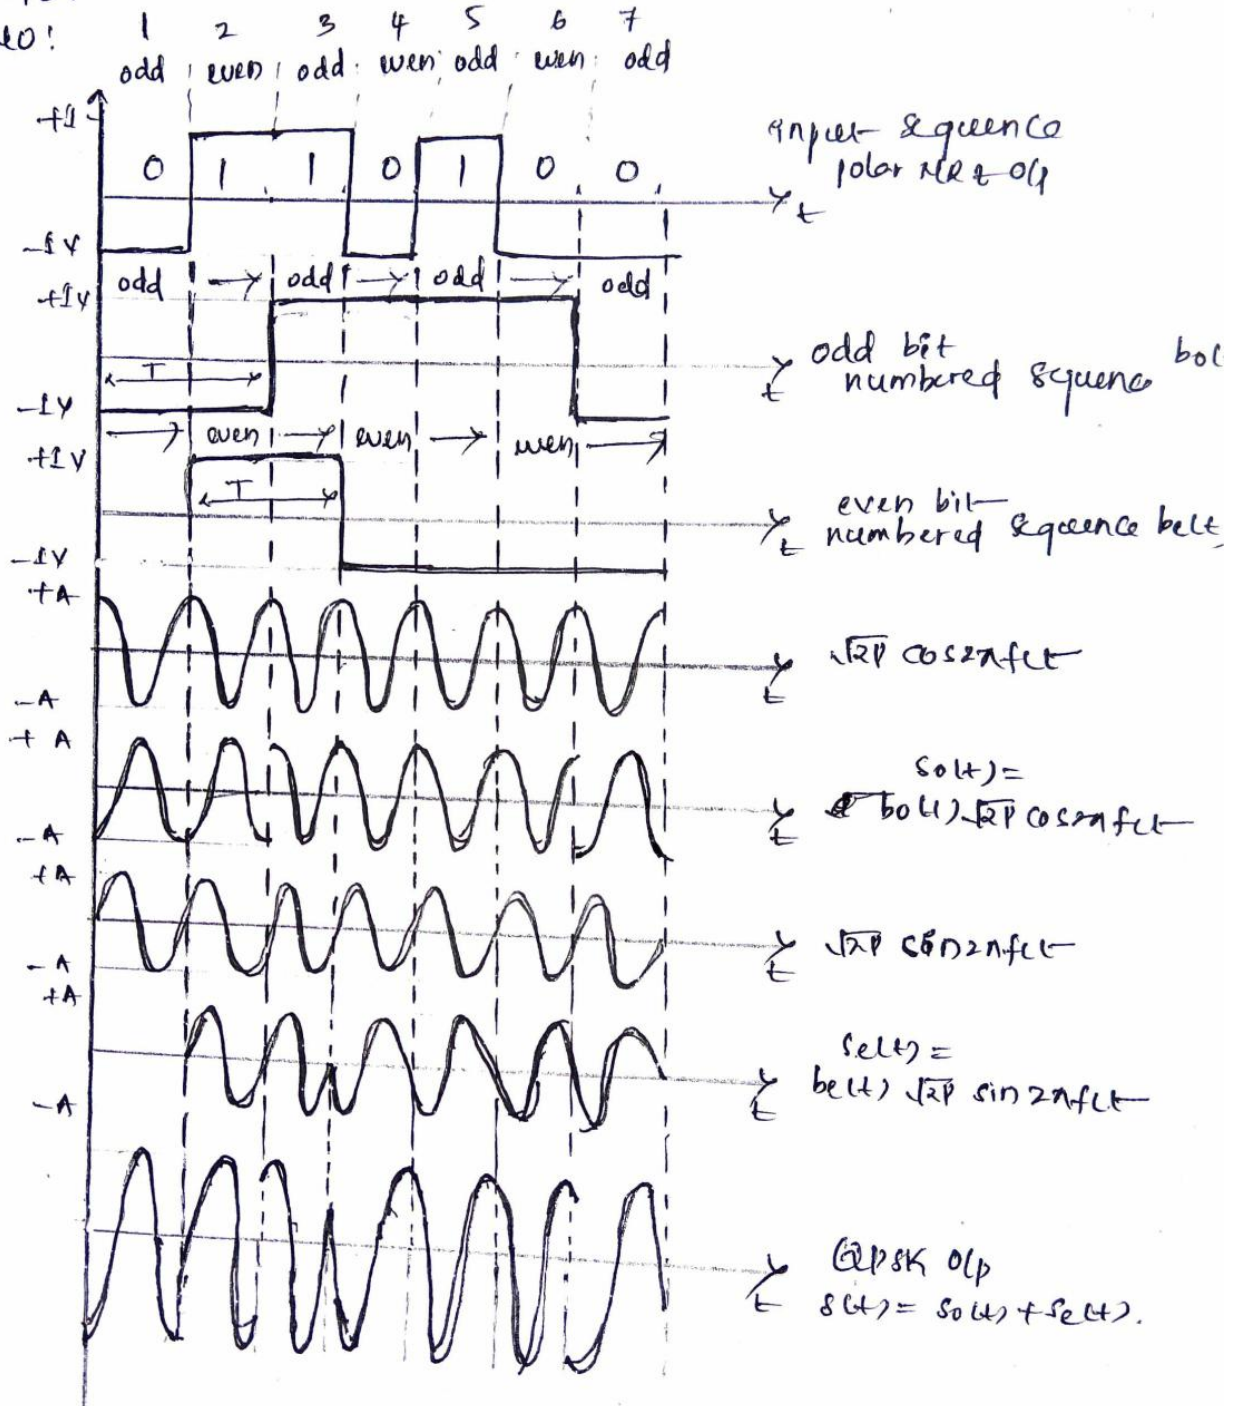 1 2 3 4 5 6 7
odd even odd even odd even odd
+1
0 1 1 0 1 0 0
-1V
input sequence
polar NRZ O/P
t
odd odd odd odd
+1V
T
-1V
odd bit
numbered squence bo(
t
even even even
+1V
T
-1V
even bit
numbered sequence be(t
t
+A
-A
√2P cos2πfct
t
+A
-A
so(t)=
bo(t)√2P cos2πfct
t
+A
-A
√2P sin2πfct
t
+A
-A
se(t)=
be(t) √2P sin2πfct
t
QPSK O/p
s(t)= so(t)+se(t).
t